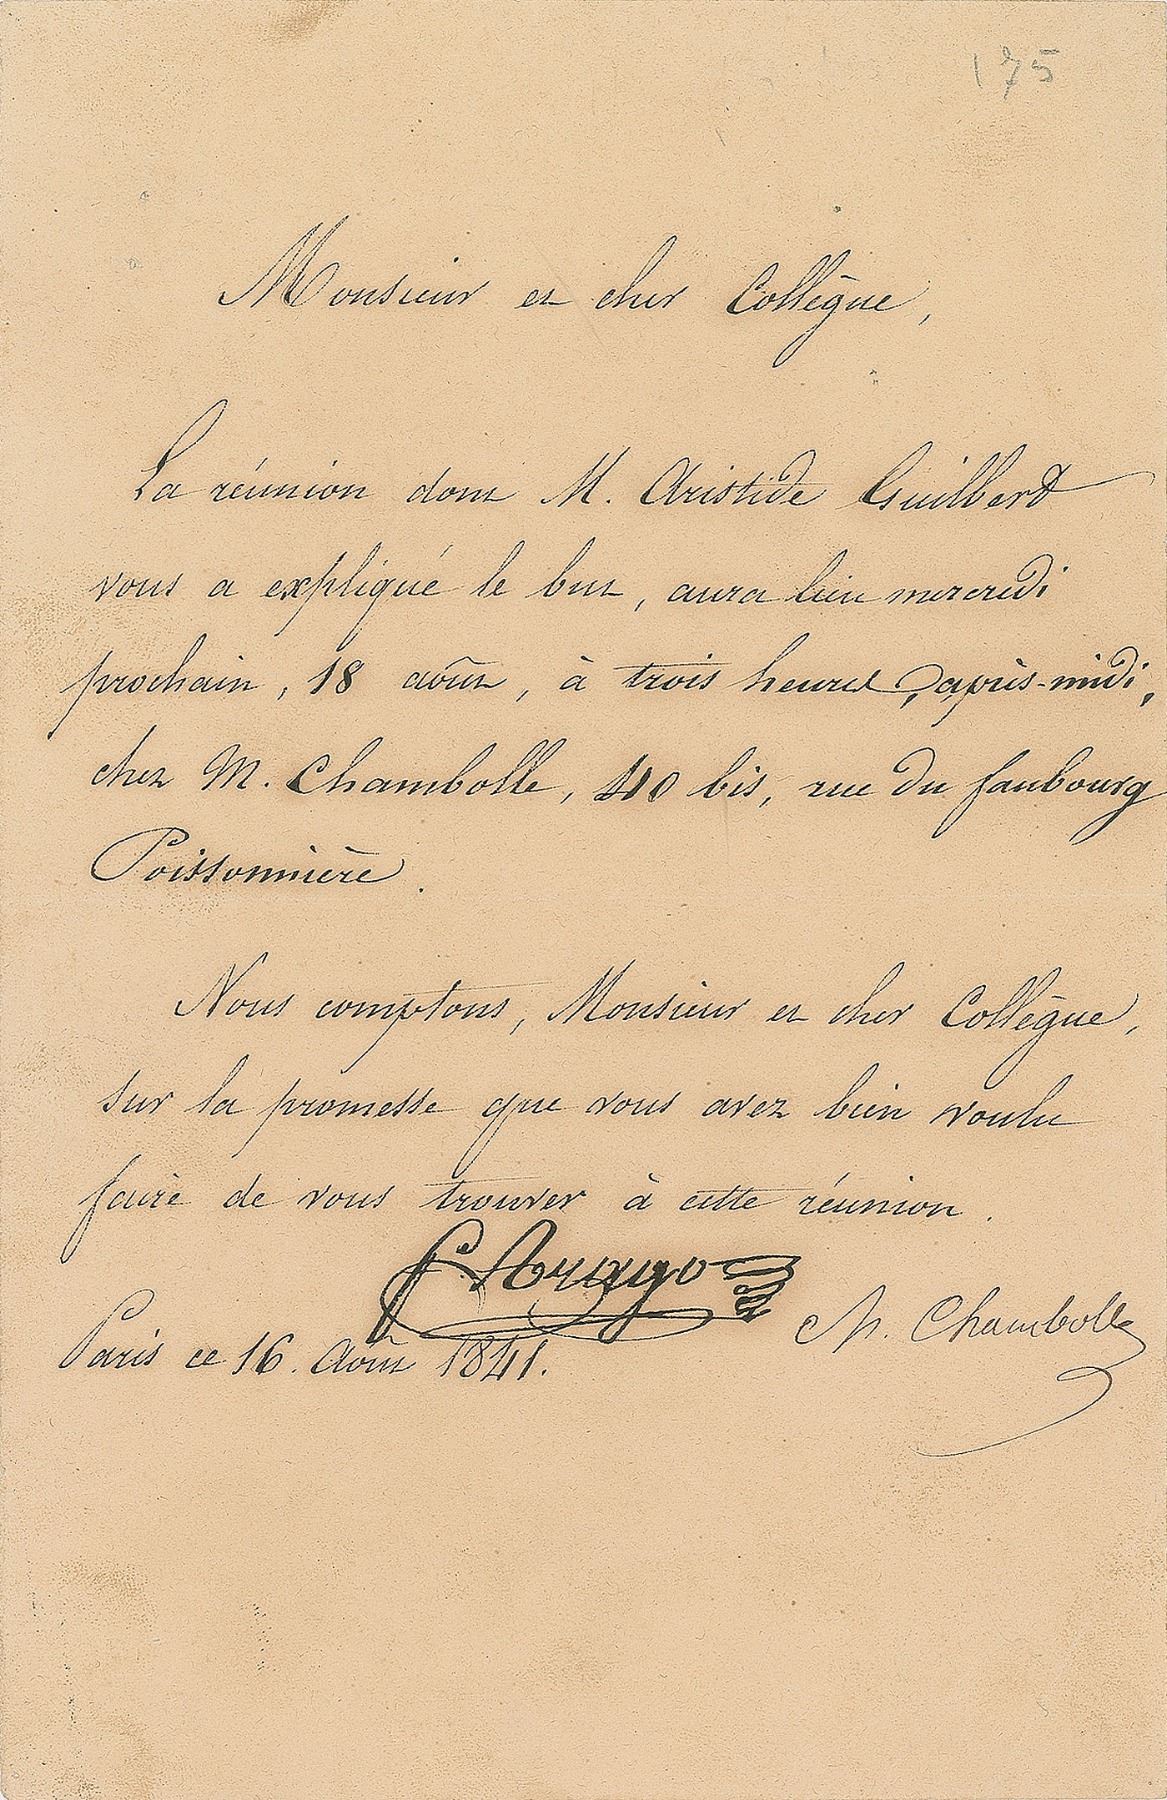 175
Monsieur et cher Collègue,
La réunion dont M. Aristide Guilbert
vous a expliqué le but, aura lieu mercredi
prochain, 18 août, à trois heures, après-midi,
chez M. Chambolle, 40 bis, rue du faubourg
Poissonnière.
Nous comptons, Monsieur et cher Collègue,
sur la promesse que vous avez bien voulu
faire de vous trouver à cette réunion.
F. Arago
Paris ce 16. Août 1841.
Chambolle